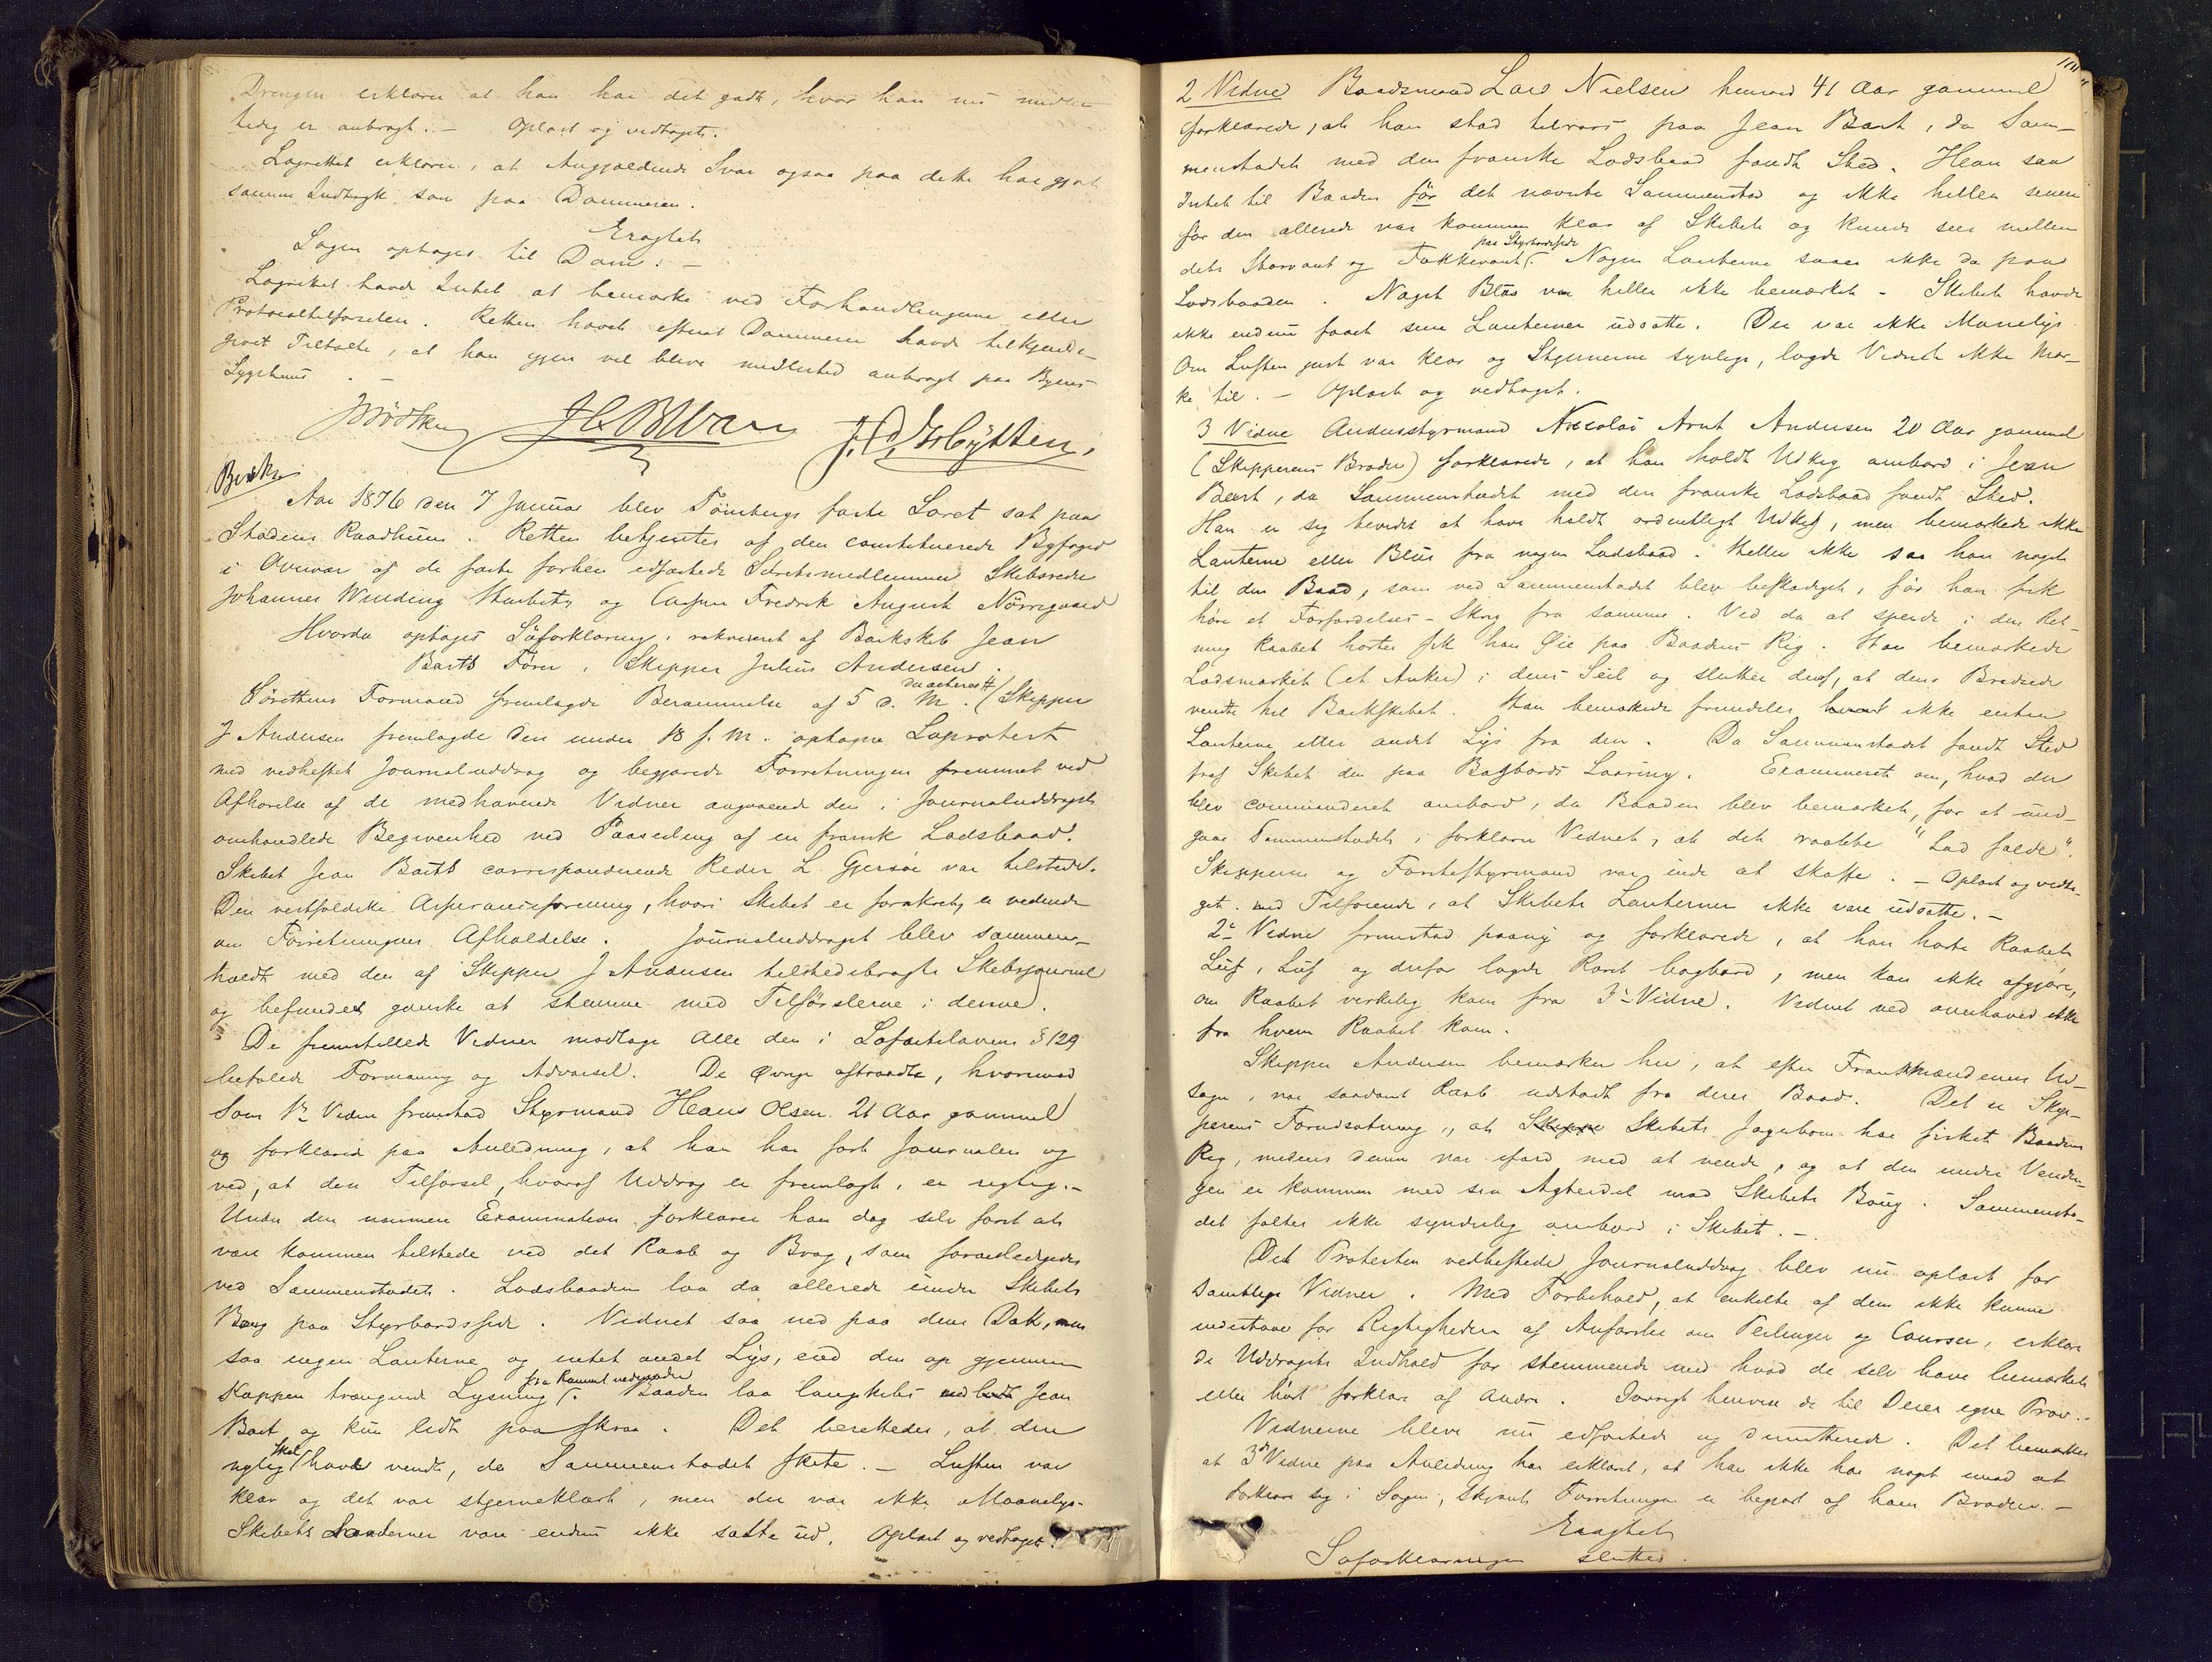 Drengen erklærer at han har det godt, hvor han nu midler-
tidig er anbragt. — Oplæst og vedtaget.
Lagrettet erklærer, at Angjældende Svar ogsaa paa dette har gjort
samme Indtryk som paa Dommeren.
Eragtet
Sagen optages til Dom. —
Lagrettet havde Intet at bemærke ved Forhandlingerne eller
Protocoltilførselen. Retten hævet efterat Dommeren havde tilkjende-
givet Tiltalte, at han igjen vil blive midlertid anbragt paa Byens
Sygehus. —
Aar 1876 den 7 Januar blev Tønsbergs faste Søret sat paa
Stadens Raadhuus. Retten betjentes af den constituerede Byfoged
i Overvær af de faste forhen edfæstede Søretsmedlemmer Skibsreder
Johannes Winding og Casper Fredrik August Nørregaard
Hvorda optoges Søforklaring, rekvireret af Barkskib Jean
Barts Fører, Skipper Julius Andersen.
Sørettens Formand fremlagde Berammelse af 5 d. M. (Skipper
J Andersen fremlagde den under 18 f. M. optagne Søprotest
med vedheftet Journaluddrag og begjærede Forretningen fremmet ved
Afhørelse af de medhavende Vidner angaaende den i Journaluddraget
omhandlede Begivenhed ved Paaseiling af en fransk Lodsbaad.
Skibet Jean Barts corresponderende Reder L. Gjersøe var tilstede.
Den vestfoldske Assuranceforening, hvori Skibet er forsikret, er vidende
om Forretningens Afholdelse. Journaluddraget blev sammen-
holdt med den af Skipper J Andersen tilstedebragte Skibsjournal
og befundet ganske at stemme med Tilførslerne i denne.
De fremstillede Vidner modtoge Alle den i Søfartslovens § 129
befalede Formaning og Advarsel. De Øvrige aftraadte, hvorimod
Som 1ste Vidne fremstod Styrmand Hans Olsen 21 Aar gammel
og forklarede paa Anledning, at han har ført Journalen og
ved, at den Tilførsel, hvoraf Uddrag er fremlagt, er rigtig. —
Under den nærmere Examination forklarer han dog selv først at
være kommen tilstede ved det Raab og Brag, som foranledigedes
ved Sammenstødet. Lodsbaaden laa da allerede under Skibets
Boug paa Styrbordsside. Vidnet saa ned paa dens Dæk, men
saa ingen Lanterne og intet andet Lys, end den op gjennem
fra Rummet nedenunder
Kappen trængende Lysning. Baaden laa langskibs Jean
Bart og kun lidt paa skraa. Det berettedes, at den
skal
nylig have vendt, da Sammenstødet skete. — Luften var
klar og det var stjerneklart, men der var ikke Maanelys.
Skibets Lanterner vare endnu ikke satte ud. Oplæst og vedtaget.
2 Vidne Baadsmand Lars Nielsen henved 41 Aar gammel
forklarede, at han stod tilrors paa Jean Bart, da Sam-
menstødet med den franske Lodsbaad fandt Sted. Han saa
Intet til Baaden før det nævnte Sammenstød og ikke heller senere
før den allerede var kommen klar af Skibet og kunde sees mellem
paa Styrbordsside
dets Storvant og Fokkevant. Nogen Lanterne saaes ikke da paa
Lodsbaaden. Noget Blus var heller ikke bemærket. — Skibet havde
ikke endnu faaet sine Lanterner udsatte. Der var ikke Maanelys.
Om Luften just var klar og Stjernerne synlige, lagde Vidnet ikke Mær-
ke til. — Oplæst og vedtaget.
3 Vidne Andenstyrmand Nicolai Arnt Andersen 20 Aar gammel
(Skipperens Broder) forklarede, at han holdt Udkig ombord i Jean
Bart, da Sammenstødet med den franske Lodsbaad fandt Sted.
Han er sig bevidst at have holdt ordentligt Udkig, men bemærkede ikke
Lanterne eller Blus fra nogen Lodsbaad. Heller ikke saa han noget
til den Baad, som ved Sammenstødet blev beskadiget, før han fik
høre et Forfærdelses-Skrig fra samme. Ved da at speide i den Ret-
ning Raabet hørtes fik han Øie paa Baadens Rig. Han bemærkede
Lodsmærket (et Anker) i dens Seil og slutter deraf, at dens Bredside
vendte til Barkskibet. Han bemærkede fremdeles ikke enten
Lanterne eller andet Lys fra den. Da Sammenstødet fandt Sted
traf Skibet den paa Bagbords Laaring. Examineret om, hvad der
blev commanderet ombord, da Baaden blev bemærket, for at und-
gaae Sammenstødet, forklarer Vidnet, at det raabte "Lad falde".
Skipperen og Førstestyrmand var inde at skaffe. — Oplæst og vedta-
get med Tilføiende, at Skibets Lanterner ikke vare udsatte. —
2det Vidne fremstod paany og forklarede, at han hørte Raabet
Luf, Luf og derfor lagde Roret bagbord, men kan ikke afgjøre,
om Raabet virkelig kom fra 3die Vidne. Vidnet ved overhoved ikke
fra hvem Raabet kom.
Skipper Andersen bemærker her, at efter Franskmændenes Ud-
sagn, var saadant Raab udstødt fra deres Baad. Det er Skip-
perens Forudsætning, at Skibets Jagerbom har fisket Baadens
Rig, medens denne var ifærd med at vende, og at den under Vendin-
gen er kommen med sin Agterdel mod Skibets Boug. Sammenstø-
det føltes ikke synderlig ombord i Skibet. —
Det Protesten vedheftede Journaluddrag blev nu oplæst for
samtlige Vidner. Med Forbehold, at enkelte af dem ikke kunne
indestaae for Rigtigheden af Anførsler om Peilinger og Courser, erklære
de Uddragets Indhold for stemmende med hvad de selv have bemærket
eller hørt forklare af Andre. Iøvrigt henvise de til Deres egne Prov. —
Vidnerne bleve nu edfæstede og dimitterede. Det bemærkes
at 3die Vidne paa Anledning har erklæret, at han ikke har noget imod at
forklare sig i Sagen, skjønt Forretningen er begjært af hans Broder. —
Eragtet
Søforklaringen sluttes.